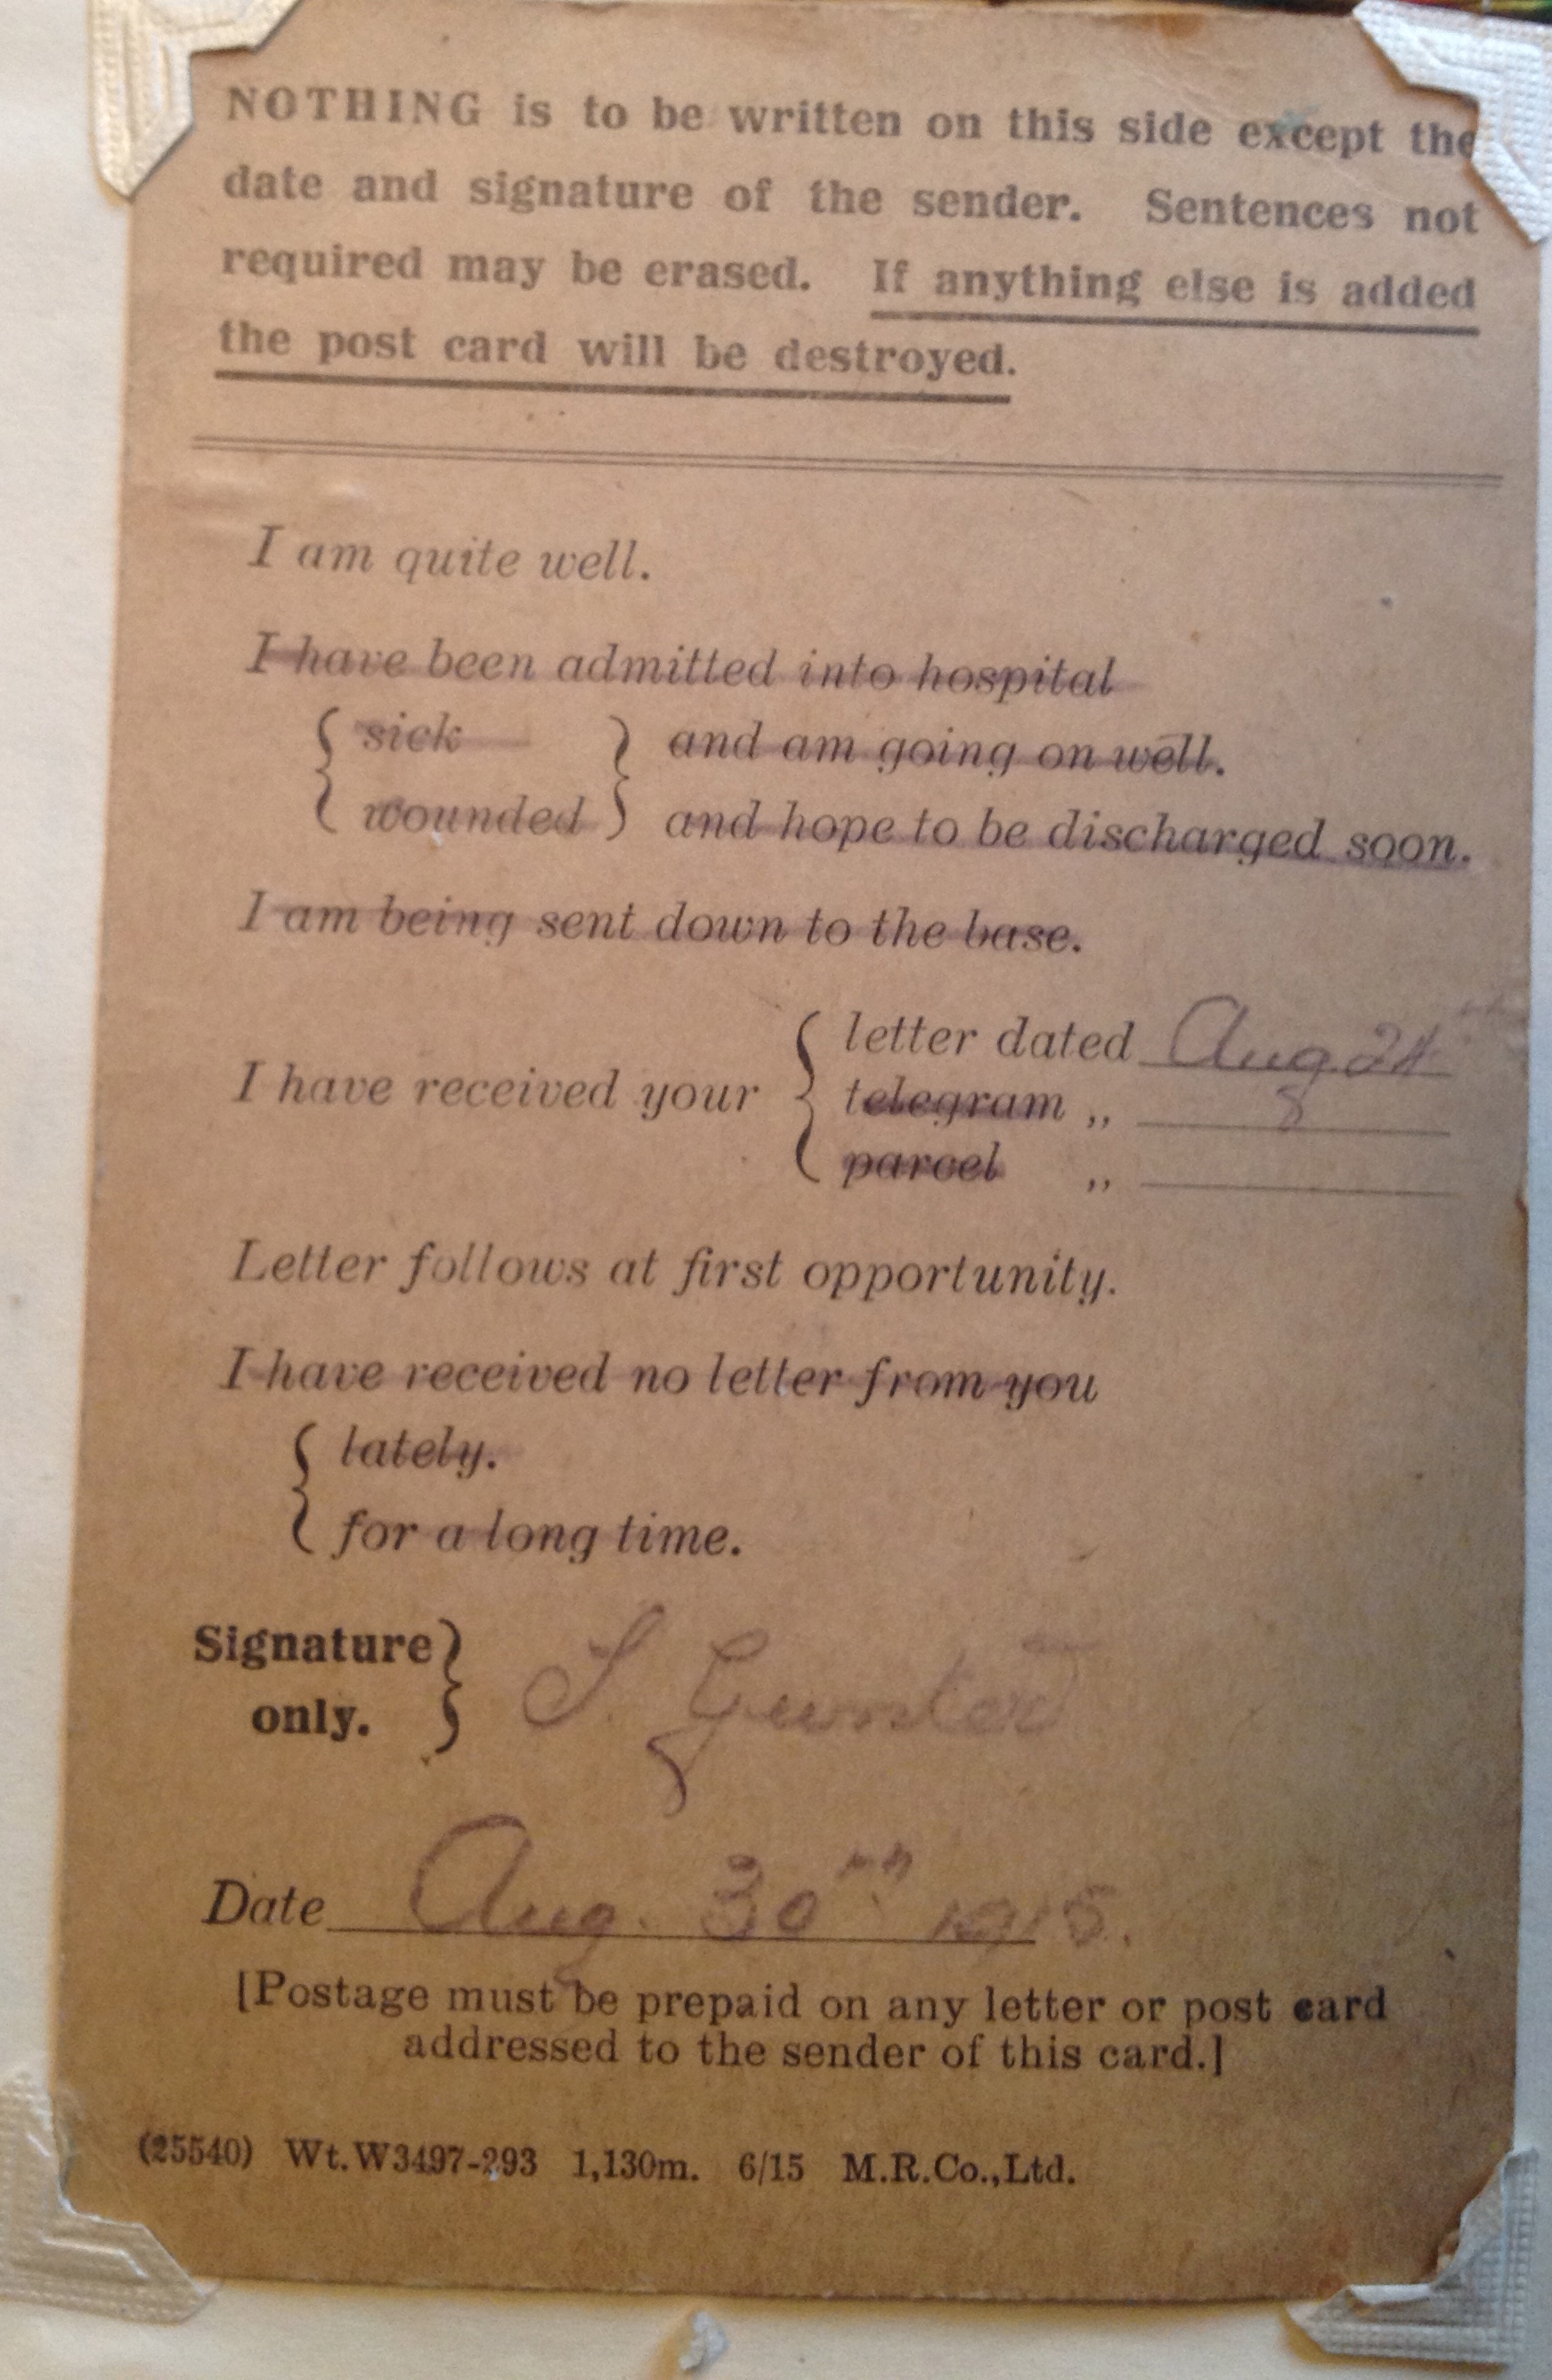 NOTHING is to be written on this side except the
date and signature of the sender. Sentences not
required may be erased. If anything else is added
the post card will be destroyed.
I am quite well.
I have been admitted into hospital
{ sick } and am going on well.
{ wounded } and hope to be discharged soon.
I am being sent down to the base.
I have received your { letter dated Aug 24th
telegram „
parcel „
Letter follows at first opportunity.
I have received no letter from you
{ lately.
for a long time.
Signature only. } S. Gunter
Date Aug. 30th 1915.
[Postage must be prepaid on any letter or post card
addressed to the sender of this card.]
(25540) Wt.W3497-293 1,130m. 6/15 M.R.Co.,Ltd.